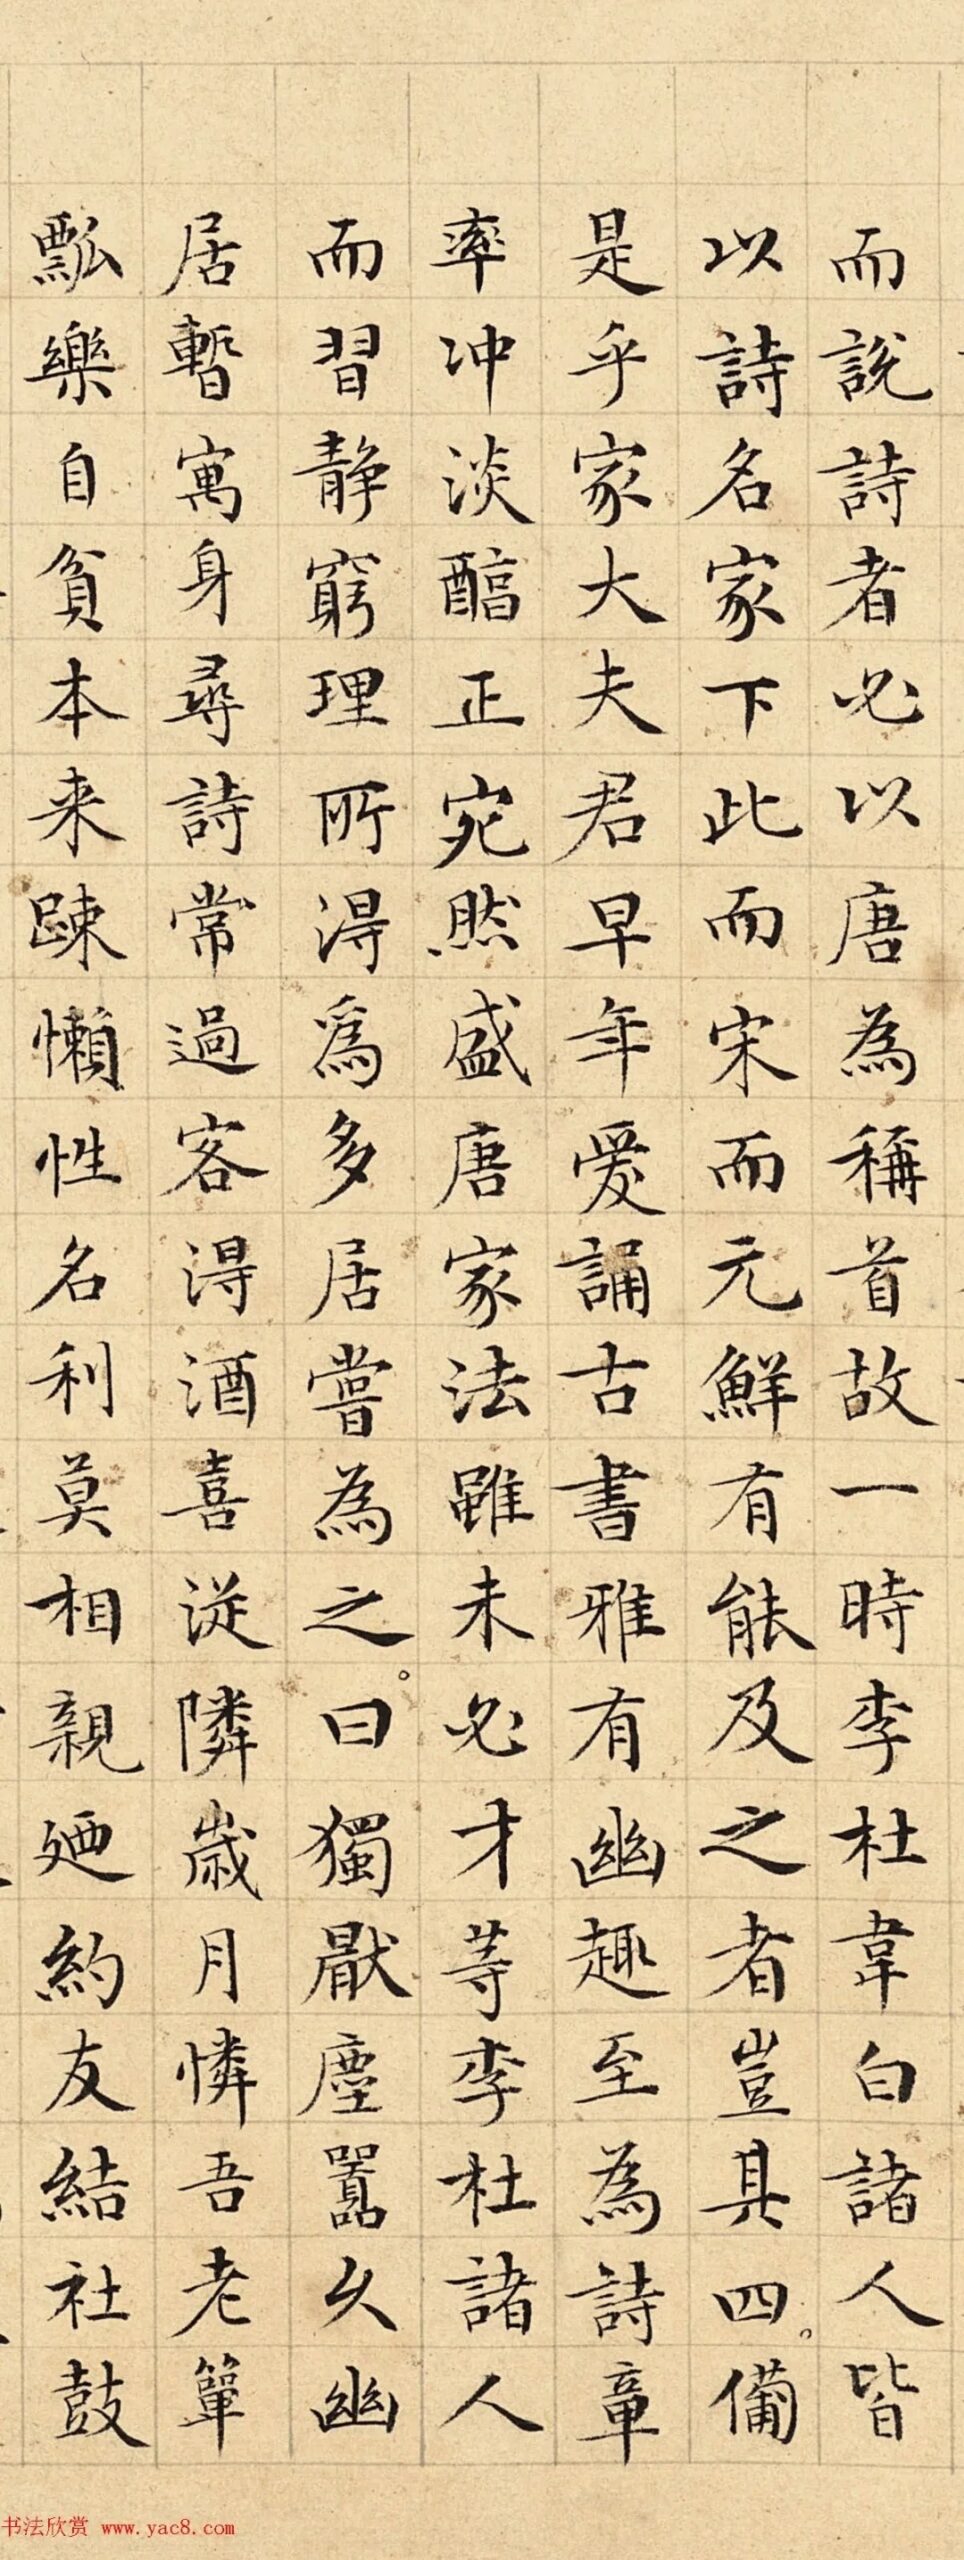 而說詩者必以唐為稱首故一時李杜韋白諸人皆
以詩名家下此而宋而元鮮有能及之者豈具四。備
是乎家大夫君早年愛誦古書雅有幽趣至為詩章
率冲淡醖正宛然盛唐家法雖未必才等李杜諸人
而習靜窮理所得爲多居嘗為之。曰獨厭塵囂久幽
居暫寓身尋詩常過客得酒喜從隣歲月憐吾老簞
瓢樂自貧本来踈懶性名利莫相親廼約友結社鼓
书法欣赏 www.yac8.com